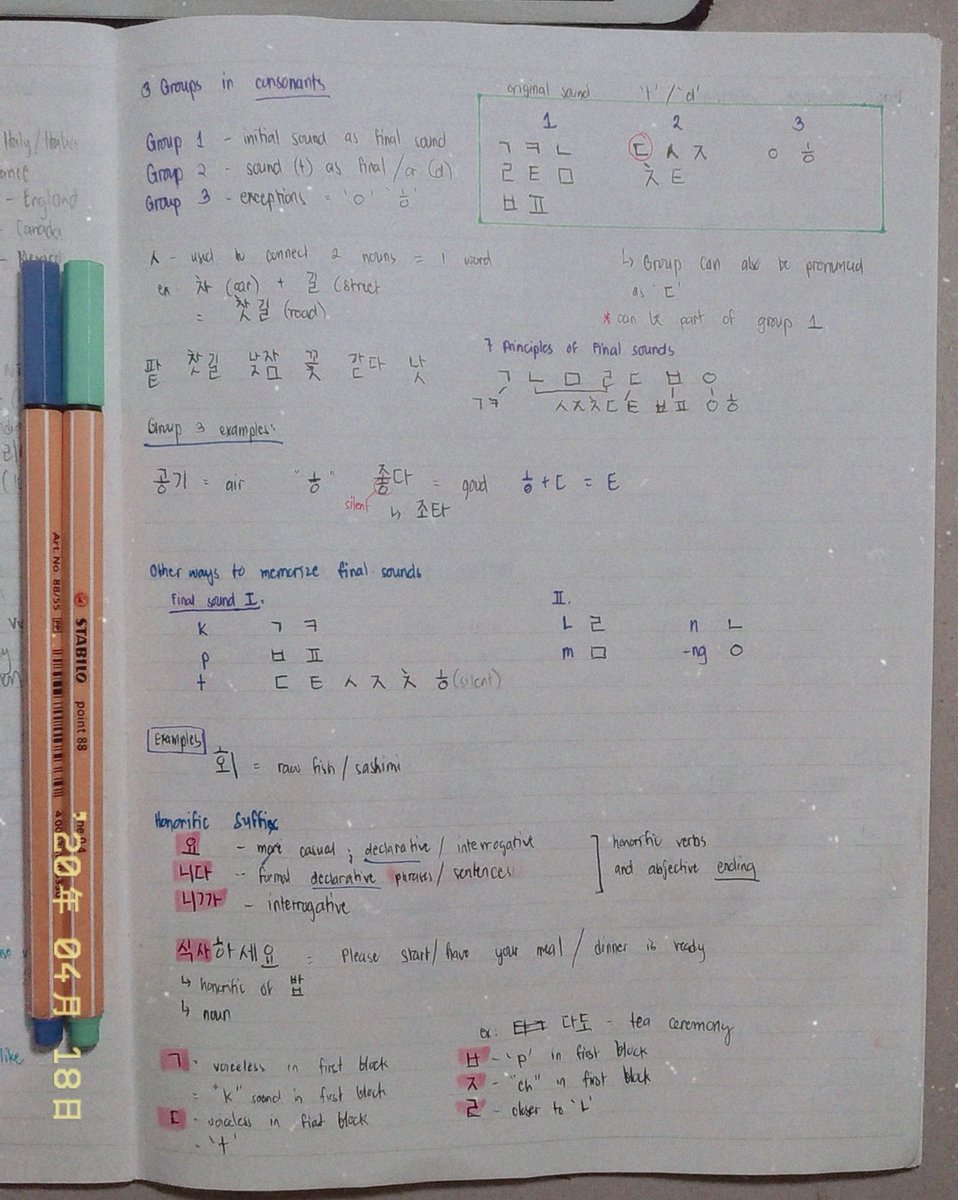 3 Groups in consonants
original sound 't' / 'd'
Group 1 - initial sound as final sound
Group 2 - sound (t) as final / or (d)
Group 3 - exceptions = 'ㅇ' 'ㅎ'
1 2 3
ㄱ ㅋ ㄴ ㄷ ㅅ ㅈ ㅇ ㅎ
ㄹ ㅌ ㅁ ㅊ ㅌ
ㅂ ㅍ
ㅅ - used to connect 2 nouns = 1 word
ex: 차 (car) + 길 (street
= 찻길 (road)
↳ Group can also be pronounced
as 'ㄷ'
* can be part of group 1
팥 찻길 낮잠 꽃 같다 낫
7 Principles of final sounds
ㄱ ㄴ ㅁ ㄹ ㄷ ㅂ ㅇ
ㄱㅋ ㅅㅈㅊㄷㅌ ㅂㅍ ㅇㅎ
Group 3 examples:
공기 = air "ㅎ" 좋다 = good ㅎ+ㄷ = ㅌ
silent ↳ 조타
Other ways to memorize final sounds
Final sound I. II.
K ㄱ ㅋ L ㄹ n ㄴ
p ㅂ ㅍ m ㅁ -ng ㅇ
t ㄷ ㅌ ㅅ ㅈ ㅊ ㅎ (silent)
Examples
회 = raw fish / sashimi
Honorific Suffix
요 - more casual ; declarative / interrogative
니다 - formal declarative phrases / sentences
니까 - interrogative
honorific verbs
and abjective ending
식사하세요 = Please start/have your meal / dinner is ready
↳ honorific of 밥
↳ noun
ex: 다도 - tea ceremony
ㄱ - voiceless in first block
= "k" sound in first block
ㄷ - voiceless in first block
- 't'
ㅂ - 'p' in first block
ㅈ - "ch" in first block
ㄹ - closer to 'L'
Italy/Italia
- England
- Canada
like
Art. No. 88/55
STABILO point 88
'20年 04月 18日